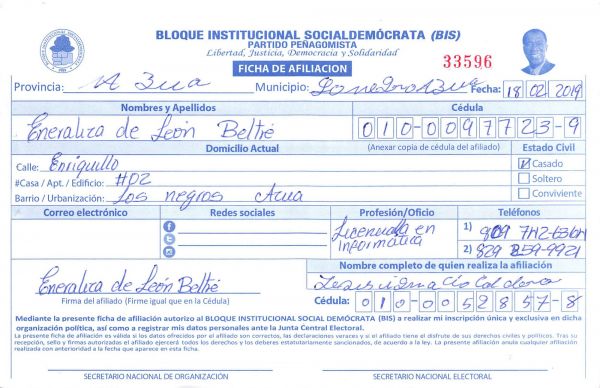 BLOQUE INSTITUCIONAL SOCIALDEMÓCRATA (BIS)
PARTIDO PEÑAGOMISTA
Libertad, Justicia, Democracia y Solidaridad
33596
FICHA DE AFILIACION
Provincia: A Zua Municipio: Fecha: 18 02 2019
Nombres y Apellidos Cédula
Eneraliza de León Beltré 010-0097723-9
Domicilio Actual (Anexar copia de cédula del afiliado) Estado Civil
Calle: Enriquillo Casado
#Casa / Apt. / Edificio: #02 Soltero
Barrio / Urbanización: Los negros Azua Conviviente
Correo electrónico Redes sociales Profesión/Oficio Teléfonos
Licenciada en 1) 809
Informática 2) 829 259-9921
Nombre completo de quien realiza la afiliación
Eneraliza de León Beltré
Firma del afiliado (Firme igual que en la Cédula) Cédula: 010-0052857-8
Mediante la presente ficha de afiliación autorizo al BLOQUE INSTITUCIONAL SOCIAL DEMÓCRATA (BIS) a realizar mi inscripción única y exclusiva en dicha
organización política, así como a registrar mis datos personales ante la Junta Central Electoral.
La presente ficha de afiliación es válida si los datos ofrecidos por el afiliado son correctos, las declaraciones veraces y si el afiliado tiene el disfrute de sus derechos civiles y políticos. Tras su
recepción, sello y firmas autorizadas el afiliado ejercerá todos los derechos y los deberes estatutariamente sancionados, de acuerdo a la ley. La presente afiliación anula cualquier afiliación
realizada con anterioridad a la fecha que aparece en esta ficha.
SECRETARIO NACIONAL DE ORGANIZACIÓN SECRETARIO NACIONAL ELECTORAL